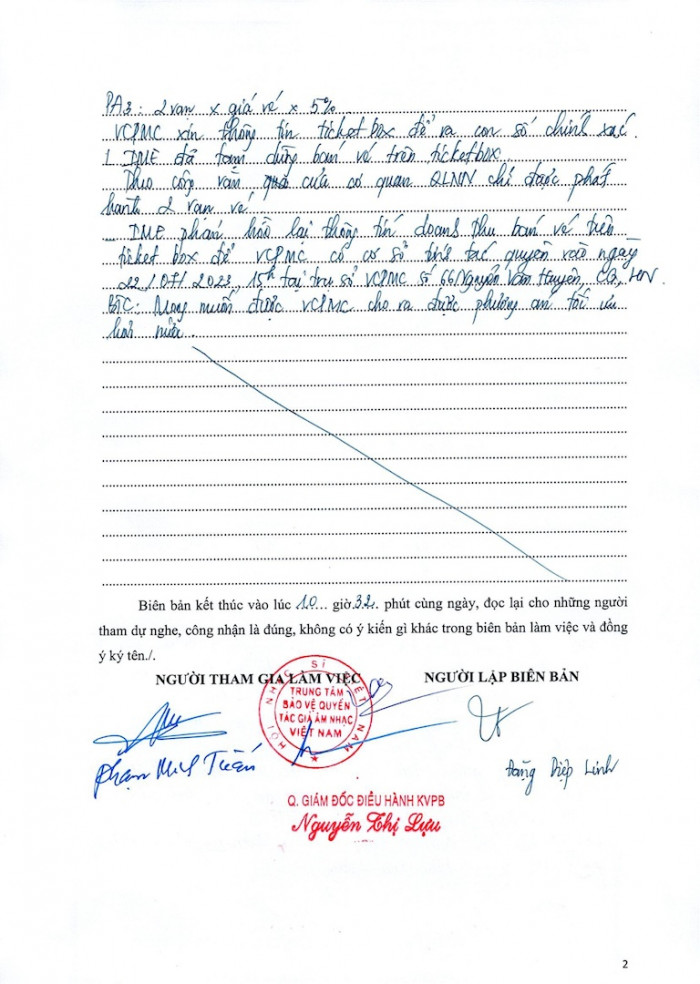 PA3: 2 vạn x giá vé x 5%
VCPMC xin thông tin ticketbox để ra con số chính xác.
1. IME đã tạm dừng bán vé trên ticketbox.
Theo công văn của cơ quan QLNN chỉ được phát
hành 2 vạn vé
IME phản hồi lại thông tin doanh thu bán vé trên
ticket box để VCPMC có cơ sở tính tác quyền vào ngày
22/07/2023, 15h tại trụ sở VCPMC số 66 Nguyễn Văn Huyên, CG, HN.
BTC: Mong muốn được VCPMC cho ra được phương án tối ưu
hơn nữa.
Biên bản kết thúc vào lúc 10 giờ 32 phút cùng ngày, đọc lại cho những người
tham dự nghe, công nhận là đúng, không có ý kiến gì khác trong biên bản làm việc và đồng
ý ký tên./.
NGƯỜI THAM GIA LÀM VIỆC NGƯỜI LẬP BIÊN BẢN
HỘI NHẠC SĨ VIỆT NAM
TRUNG TÂM
BẢO VỆ QUYỀN
TÁC GIẢ ÂM NHẠC
VIỆT NAM
Phạm Minh Tuấn
Đặng Diệp Linh
Q. GIÁM ĐỐC ĐIỀU HÀNH KVPB
Nguyễn Thị Lựu
2